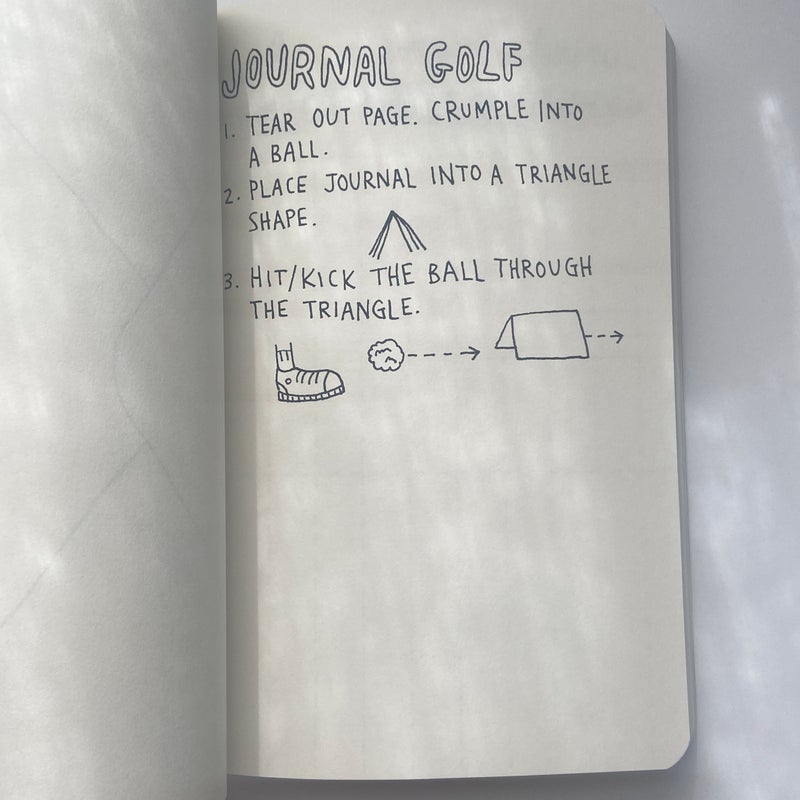 JOURNAL GOLF
1. TEAR OUT PAGE. CRUMPLE INTO
A BALL.
2. PLACE JOURNAL INTO A TRIANGLE
SHAPE.
3. HIT/KICK THE BALL THROUGH
THE TRIANGLE.